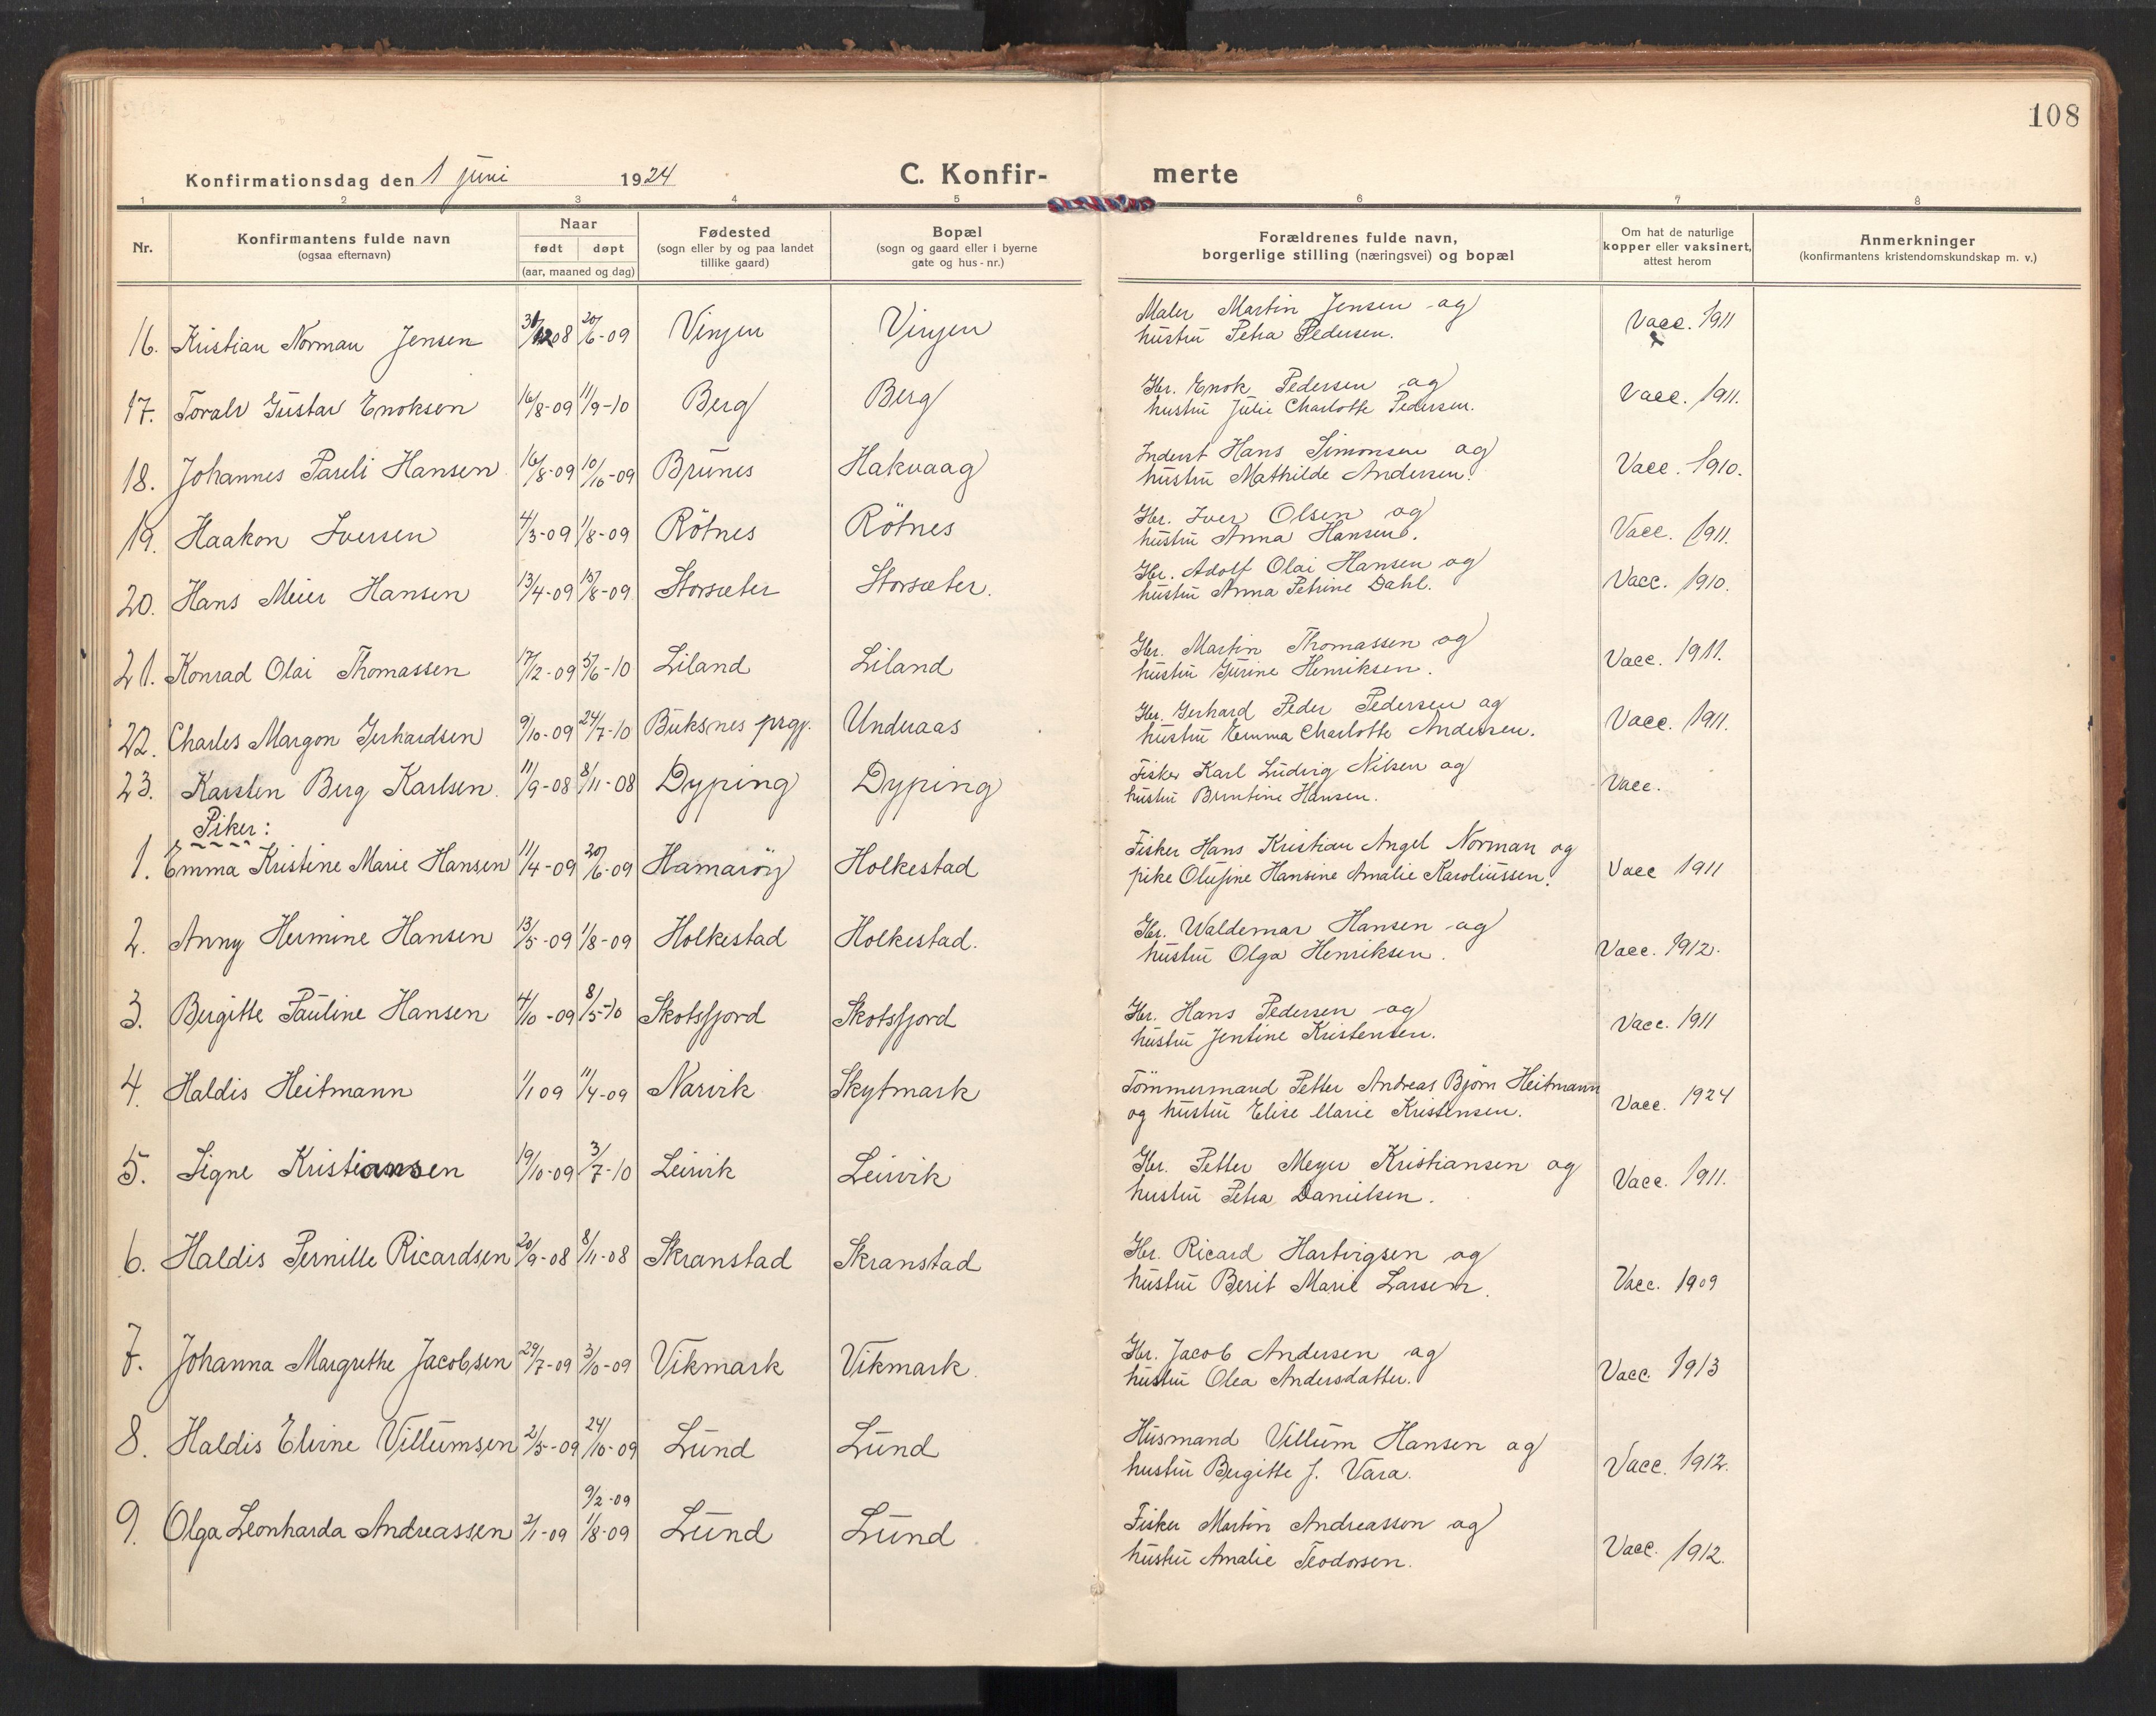 108
Konfirmationsdag den 1 juni 1924
C. Konfir-merte
1 2 3 4 5 6 7 8
Nr.
Konfirmantens fulde navn
(ogsaa efternavn)
Naar
født døpt
(aar, maaned og dag)
Fødested
(sogn eller by og paa landet
tillike gaard)
Bopæl
(sogn og gaard eller i byerne
gate og hus-nr.)
Forældrenes fulde navn,
borgerlige stilling (næringsvei) og bopæl
Om hat de naturlige
kopper eller vaksinert,
attest herom
Anmerkninger
(konfirmantens kristendomskundskap m. v.)
16. Kristian Norman Jensen 31/12 08 20/6-09 Vinjen Vinjen Maler Martin Jensen og
hustru Petra Pedersen. Vacc. 1911
17. Toralv Gustav Enoksen 16/8-09 11/9-10 Berg Berg Gbr. Enok Pedersen og
hustru Julie Charlotte Pedersen. Vacc. 1911.
18. Johannes Pareli Hansen 16/8-09 10/10-09 Brunes Hakvaag Inderst Hans Simonsen og
hustru Mathilde Andersen. Vacc. 1910.
19. Haakon Iversen 4/3-09 1/8-09 Rötnes Rötnes Gbr. Iver Olsen og
hustru Anna Hansen. Vacc. 1911.
20. Hans Meier Hansen 13/4-09 15/8-09 Storsæter Storsæter. Gbr. Adolf Olai Hansen og
hustru Anna Petrine Dahl. Vacc. 1910.
21. Konrad Olai Thomassen 17/12-09 5/6-10 Liland Liland Gbr. Martin Thomassen og
hustru Jurine Henriksen. Vacc. 1911.
22. Charles Margon Gerhardsen 9/10-09 24/7-10 Buksnes prgj. Undvaas Gbr. Gerhard Peder Pedersen og
hustru Emma Charlotte Andersen. Vacc. 1911.
23. Karsten Berg Karlsen. 11/9-08 8/11-08 Dyping Dyping Fisker Karl Ludvig Nilsen og
hustru Berntine Hansen. Vacc.
Piker:
1. Emma Kristine Marie Hansen 11/4-09 20/6-09 Hamaröy Holkestad Fisker Hans Kristian Angel Norman og
pike Olufine Hansine Amalie Karoliussen. Vacc 1911
2. Anny Hermine Hansen 13/5-09 1/8-09 Holkestad Holkestad. Gbr. Waldemar Hansen og
hustru Olga Henriksen. Vacc. 1912.
3. Bergitte Pauline Hansen 4/10-09 8/5-10 Skotsfjord Skotsfjord Gbr. Hans Pedersen og
hustru Jentine Kristensen. Vacc. 1911
4. Haldis Heitmann 1/1 09 11/4-09 Narvik Skytmark Tömmermand Petter Andreas Björn Heitmann
og hustru Elise Marie Kristensen. Vacc. 1924
5. Signe Kristiansen 19/10-09 3/7-10 Leirvik Leirvik Gbr. Petter Meyer Kristiansen og
hustru Petra Danielsen. Vacc. 1911.
6. Haldis Pernille Ricardsen 20/9-08 8/11-08 Skranstad Skranstad Gbr. Ricard Hartvigsen og
hustru Berit Marie Larsen. Vacc. 1909
7. Johanna Margrethe Jacobsen 29/7-09 3/10-09 Vikmark Vikmark. Gbr. Jacob Andersen og
hustru Olea Andersdatter. Vacc 1913
8. Haldis Elvine Villumsen 2/5-09 24/10-09 Lund Lund Husmand Villum Hansen og
hustru Bergitte J. Vara. Vacc. 1912.
9/2-09
9. Olga Leonharda Andreassen 2/1-09 1/8-09 Lund Lund Fisker Martin Andreassen og
hustru Amalie Teodorsen. Vacc. 1912.